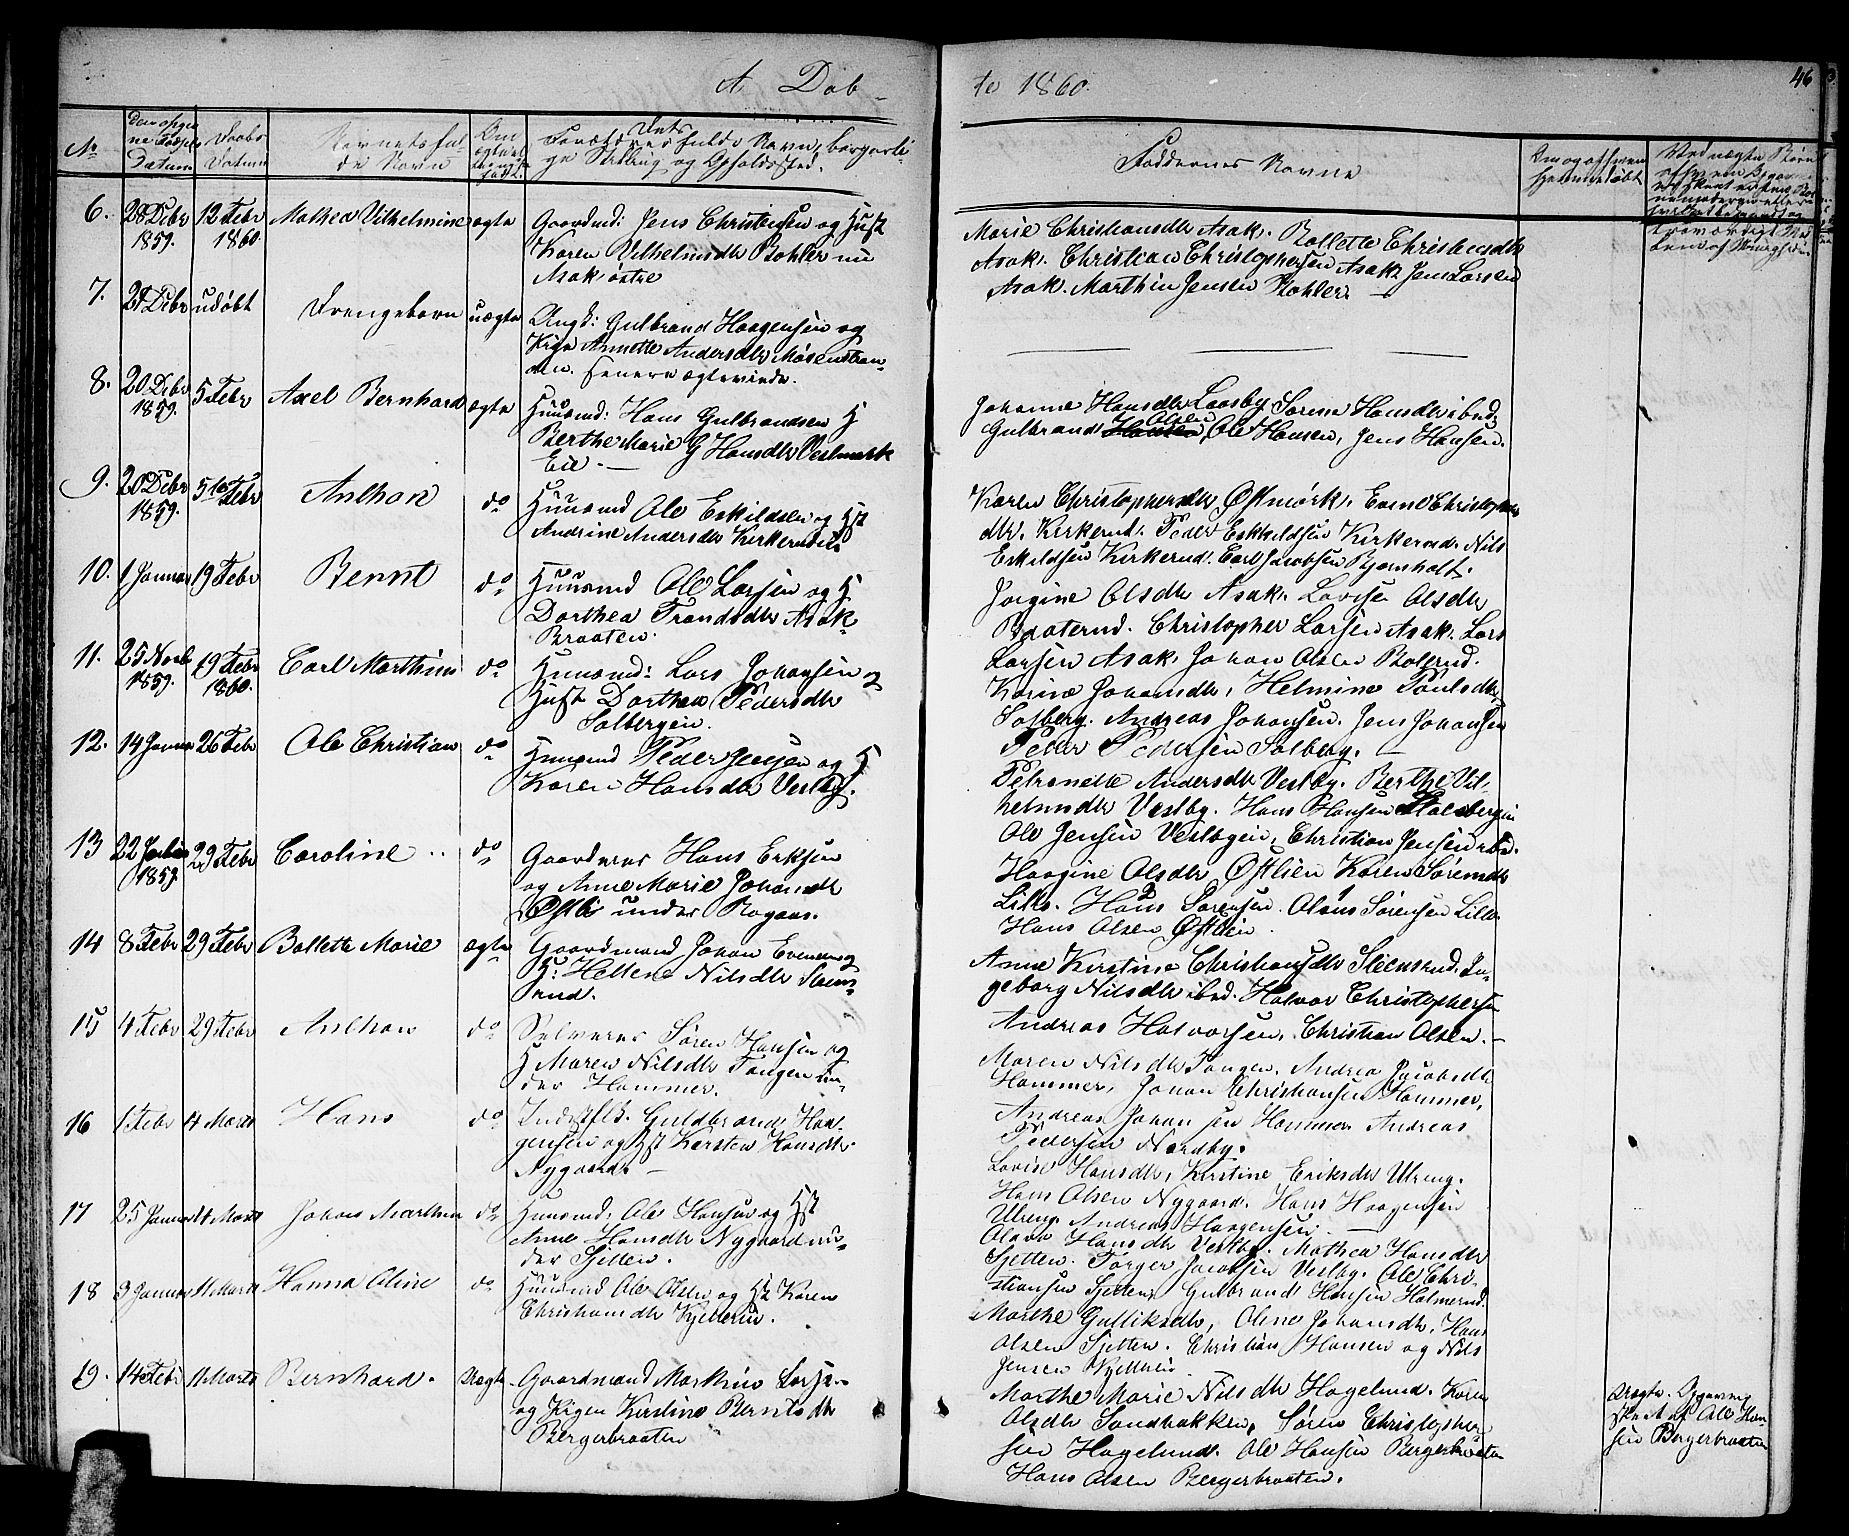 A. Døb-
te 1860.
46
No
Datum
Daabs
Datum
de Navn
Om
ægte el
Forældres fulde Navn, borgerli-
ge Stilling og Opholdssted.
Faddernes Navne
hjemmedøbt
6. 28 Debr 1859. 12 Febr 1860. Mathea Vilhelmine ægte
Gaardmd: Jens Christensen og Hust
Karen Vilhelmsdtr Bøhler nu
Asak østre
Marie Christiansdtr Asak. Bollette Christensdtr
Asak. Christian Christophersen Asak. Jens Larsen
Asak. Marthin Jensen Bøhler. —
7. 21 Debr udøbt Drengebarn uægte
Ungk: Gulbrand Haagensen og
Pige Annette Andersdtr Mosenstran-
den. senere ægteviede.
8. 20 Debr 1859. 5 Febr Axel Bernhard ægte
Huusmd: Hans Gulbrandsen H
Berthe Marie G Hansdtr Vestmark
Eie. —
Johanne Hansdtr Laasby Sørine Hansdtr ibd.
Gulbrand Hansen Olsen, Ole Hansen, Jens Hansen.
9. 20 Debr 1859. 5te Febr Anthon do
Huusmd Ole Eskildsen og Hst
Andrine Andersdtr Kirkerud
Karen Christophersdtr Østmørk. Evine Christophers
dtr. Kirkerud. Peder Eskildsen Kirkerud. Nils
Eskildsen Kirkerud. Carl Jacobsen Bjørnholt.
10. 1 Januar 19 Febr Bernt do
Huusmd Ole Larsen og H
Dorthea Trondsdtr Asak-
Braaten.
Jørgine Olsdtr Asak. Lovise Olsdtr
Braaterud. Christopher Larsen Asak. Lars
Larsen Asak. Johan Olsen Bollerud.
11. 25 Novbr 1859. 19 Febr 1860. Carl Marthin do
Huusmd: Lars Johansen og
Hust Dorthea Pedersdtr
Solbergeie.
Karine Johansdtr, Helmine Poulsdtr
Solberg. Andreas Johansen. Jens Johansen
Peder Pedersen Solberg. —
12. 14 Januar 26 Febr Ole Christian do
Huusmd Peder Jensen og H
Karen Hansdtr Vestby.
Petronelle Andersdtr Vestby. Berthe Vil-
helmsdtr Vestby. Hans Hansen
Ole Jensen Vestbyeie, Christian Jensen ibd.
13 22 1859. 29 Febr Caroline do
Gaarderes Hans Eriksen
og Anne Marie Johansdtr
Østli under Ragaas.
Haagine Olsdtr Østlien Karen Sørensdtr
Lille. Hans Sørensen. Olaus Sørensen Lille.
Hans Olsen Østlien.
14 8 Febr 29 Febr Bollette Marie ægte
Gaardmand Johan Evensen og
H: Hellene Nilsdtr Steens-
rud.
Anne Kirstine Christiansdtr Steensrud. In-
geborg Nilsdtr ibd. Halvor Christophersen
Andreas Halvorsen. Christian Olsen. —
15 4 Febr 29 Febr Anthon do
Selveres Søren Hansen og
H Maren Nilsdtr Tangen un-
der Hammer.
Maren Nilsdtr Tangen. Andrea Jacobsdtr
Hammer, Johan Christiansen Hammer,
Andreas Johansen Hammer Andreas
Pedersen Nordby.
16 1 Febr 4 Marts Hans do
Inderst Guldbrand Haa-
gensen og Hst Kersten Hansdtr
Nygaard. —
Lovise Hansdtr, Kirstine Eriksdtr Ulreng.
Hans Olsen Nygaard. Hans Haagensen
Ulreng. Andreas Haagensen. —
17 25 Januar 11 Marts Johan Marthin do
Huusmd: Ole Hansen og Hst
Anne Hansdtr Nygaard un-
der Sjetten.
Olava Hansdtr Vestby. Mathea Hansdtr
Sjetten. Torger Jacobsen Vestby. Ole Chri-
stiansen Sjetten, Gulbrand Hansen Holmerud.
18 3 Januar 11 Marts Hanna Oline do
Huusmd Ole Olsen og Hst Karen
Christiansdtr Kjelleeie.
Marthe Gulliksdtr, Oline Johansdtr, Hans
Olsen Sjetten. Christian Hansen og Nils
Jensen Kjelleeie
19. 14 Febr 11 Marts Bernhard. Uægte.
Gaardmand Marthin Larsen
og Pigen Kirstine Berntsdtr
Bergerbraaten
Marthe Marie Nilsdtr Hagelund. Karen
Olsdtr Sandbakken, Søren Christopher-
sen Hagelund. Ole Hansen Bergerbraaten
Hans Olsen Bergerbraaten.
Uægte. Opgivning
skeet af Ole Han-
sen Bergerbraaten